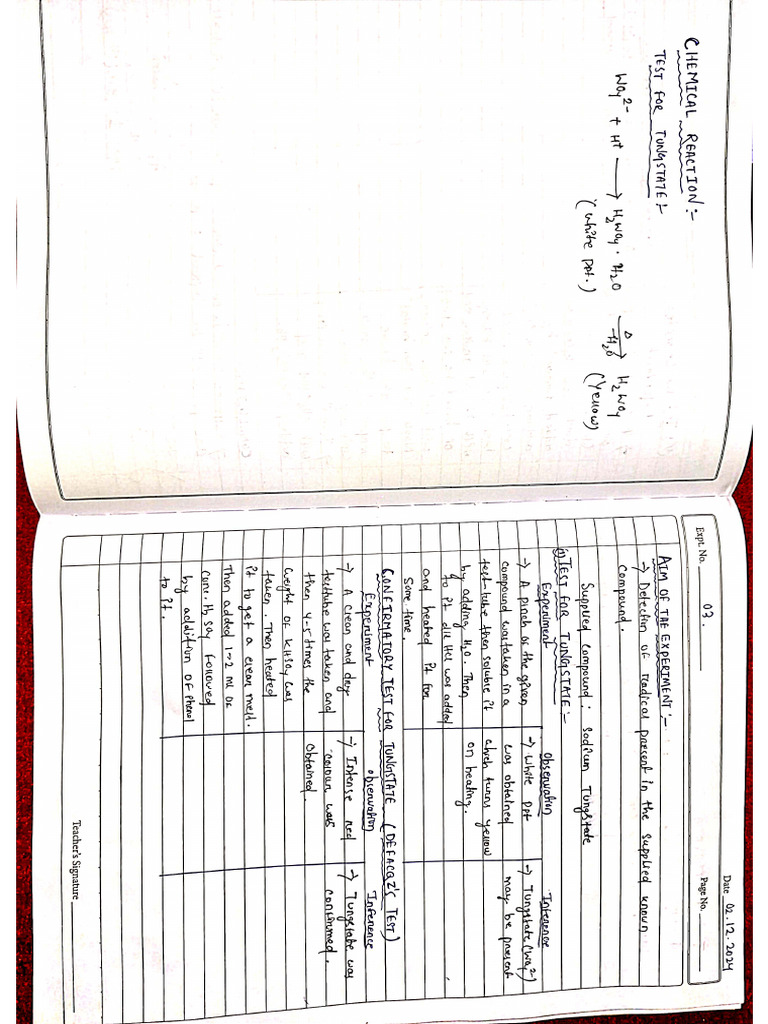 CHEMICAL REACTION:-
TEST FOR TUNGSTATE:-
WO4²⁻ + H⁺ ⟶ H2WO4 · H2O —Δ/-H2O→ H2WO4
(White ppt.) (Yellow)
Expt. No. 03.
Date 02.12.2024
Page No.
AIM OF THE EXPERIMENT:-
→ Detection of radical present in the supplied known
compound.
Supplied compound : Sodium Tungstate
① TEST FOR TUNGSTATE:-
Experiment Observation Inference
→ A pinch of the given → White ppt → Tungstate (WO4²⁻)
compound was taken in a was obtained may be present
test-tube then soluble it which turns yellow
by adding H2O. Then on heating.
to it dil HCl was added
and heated it for
some time.
CONFIRMATORY TEST FOR TUNGSTATE (DEFACQZ'S TEST)
Experiment Observation Inference
→ A clean and dry → Intense red → Tungstate was
testtube was taken and colour was confirmed.
then 4-5 times the obtained.
weight of KHSO4 was
taken. Then heated
it to get a clean melt.
Then added 1-2 ml of
conc. H2SO4 followed
by addition of phenol
to it.
Teacher's Signature